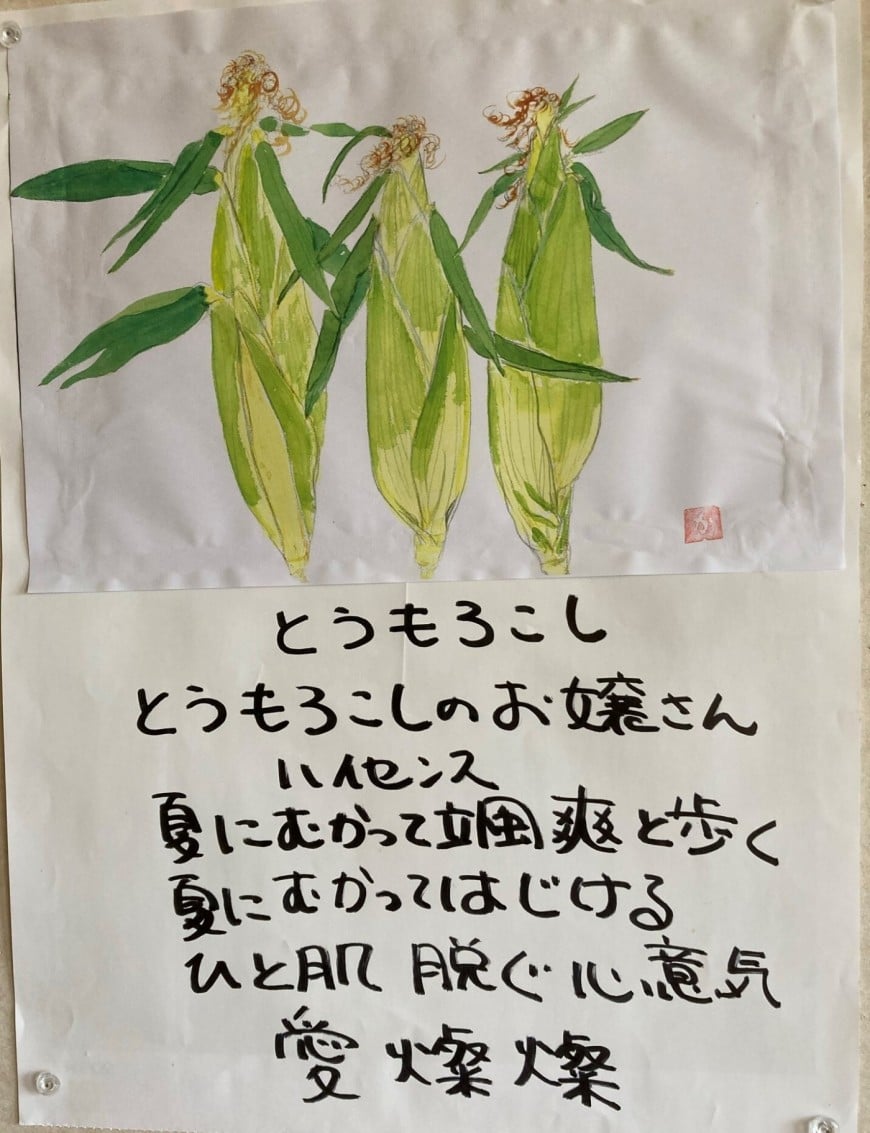 か
とうもろこし
とうもろこしのお嬢さん
ハイセンス
夏にむかって颯爽と歩く
夏にむかってはじける
ひと肌 脱ぐ 心意気
愛 燦 燦